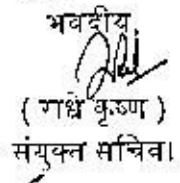 भवदीय,
( राधे कृष्ण )
संयुक्त सचिव।